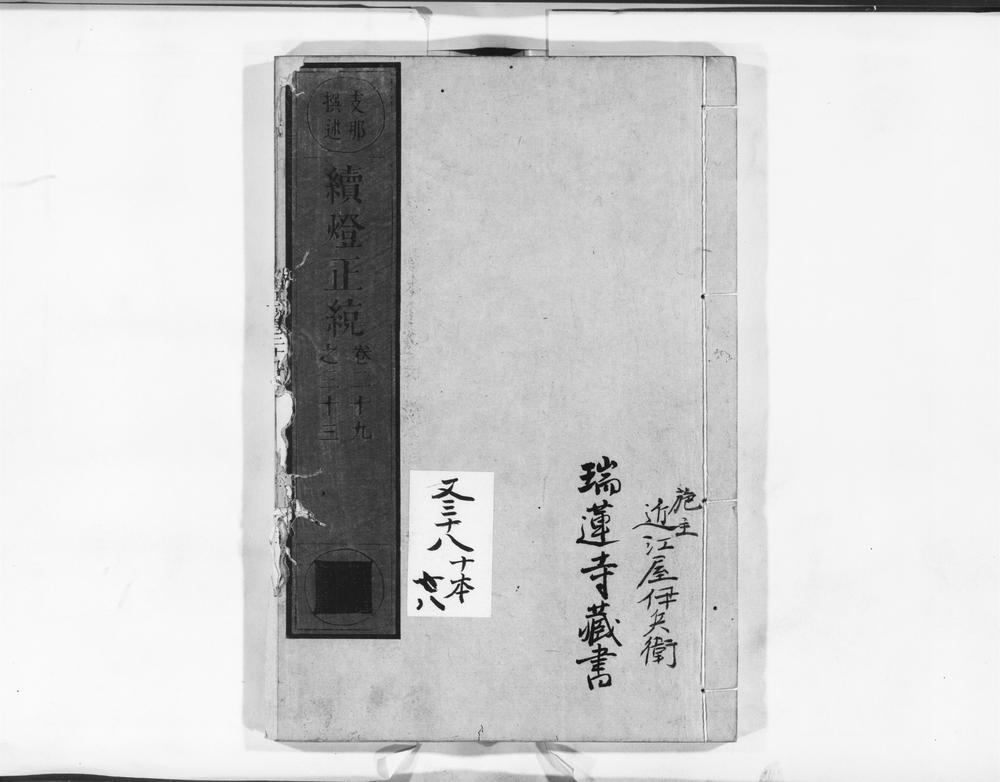 施主
近江屋伊兵衛
瑞蓮寺藏書
又三十八
十本
廿八
支那
撰述
續燈正統
卷二十九
之三十三